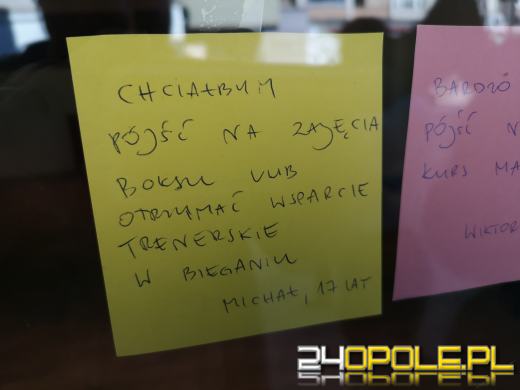 CHCIAŁBYM
PÓJŚĆ NA ZAJĘCIA
BOKSU LUB
OTRZYMAĆ WSPARCIE
TRENERSKIE
W BIEGANIU
MICHAŁ, 17 LAT
BARDZO
PÓJŚĆ N
KURS MA
WIKTOR
24OPOLE.PL